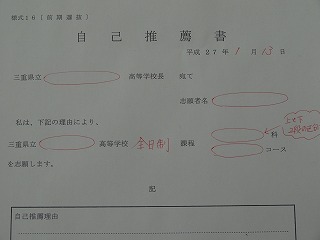 様式16(前期選抜)
自己推薦書
平成 27年 1月 13日
三重県立 高等学校長 宛て
志願者名
私は、下記の理由により、
三重県立 高等学校 全日制 課程 科
コース
を志願します。
記
自己推薦理由